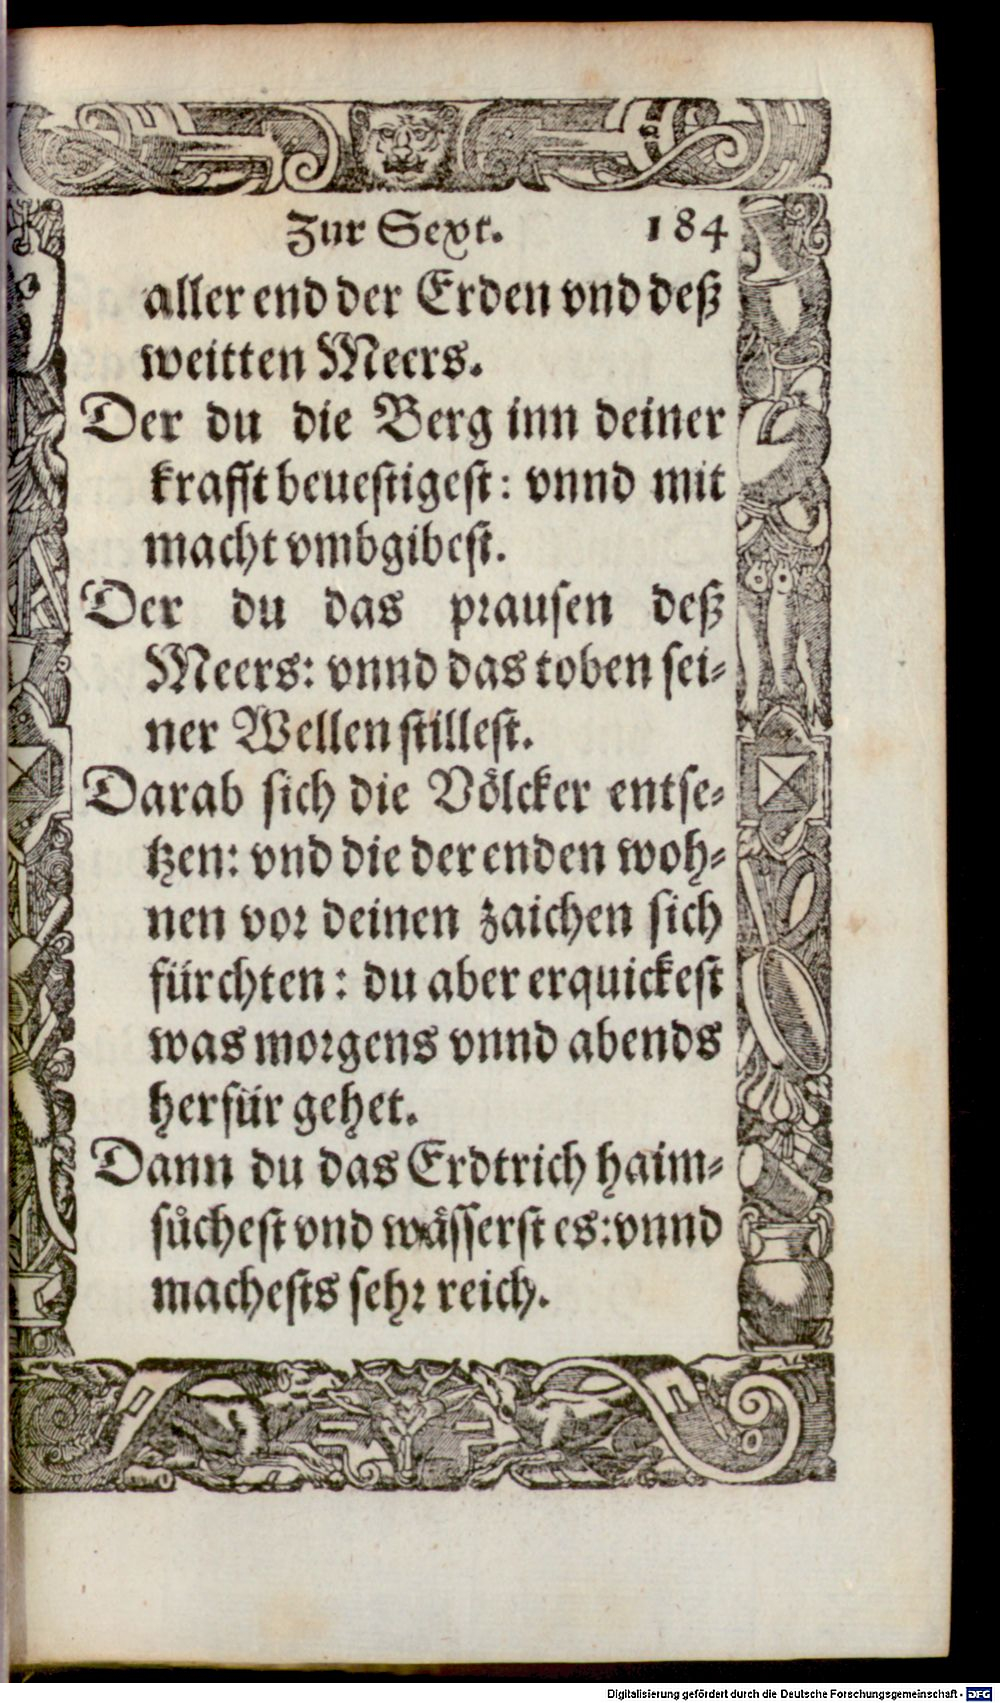 Zur Sext. 184
aller end der Erden vnd deß
weitten Meers.
Der du die Berg inn deiner
krafft beuestigest: vnnd mit
macht vmbgibest.
Der du das prausen deß
Meers: vnnd das toben sei-
ner Wellen stillest.
Darab sich die Völcker entse-
tzen: vnd die der enden woh-
nen vor deinen zaichen sich
fürchten: du aber erquickest
was morgens vnnd abends
herfür gehet.
Dann du das Erdtrich haim-
sůchest vnd wässerst es: vnnd
machests sehr reich.
Digitalisierung gefördert durch die Deutsche Forschungsgemeinschaft - DFG